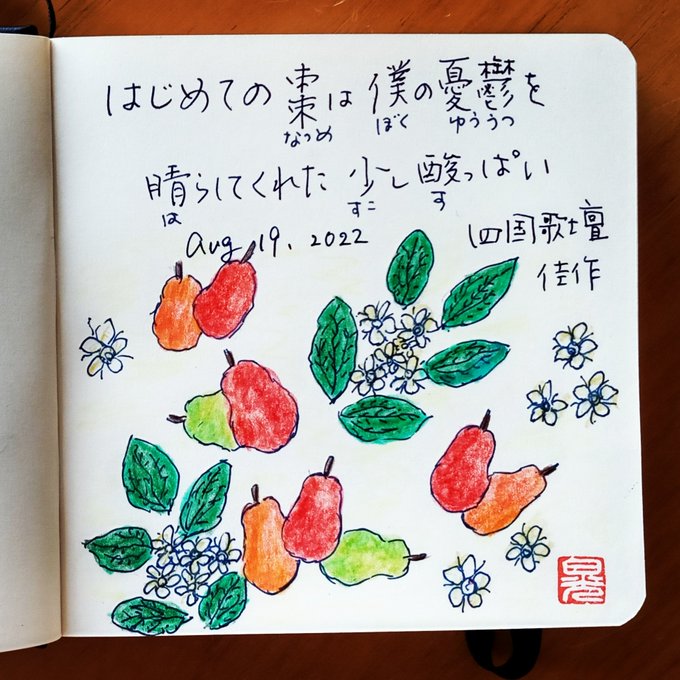 はじめての棗は僕の憂鬱を
なつめ ぼく ゆううつ
晴らしてくれた少し酸っぱい
は すこ す
Aug 19. 2022 四国歌壇
佳作